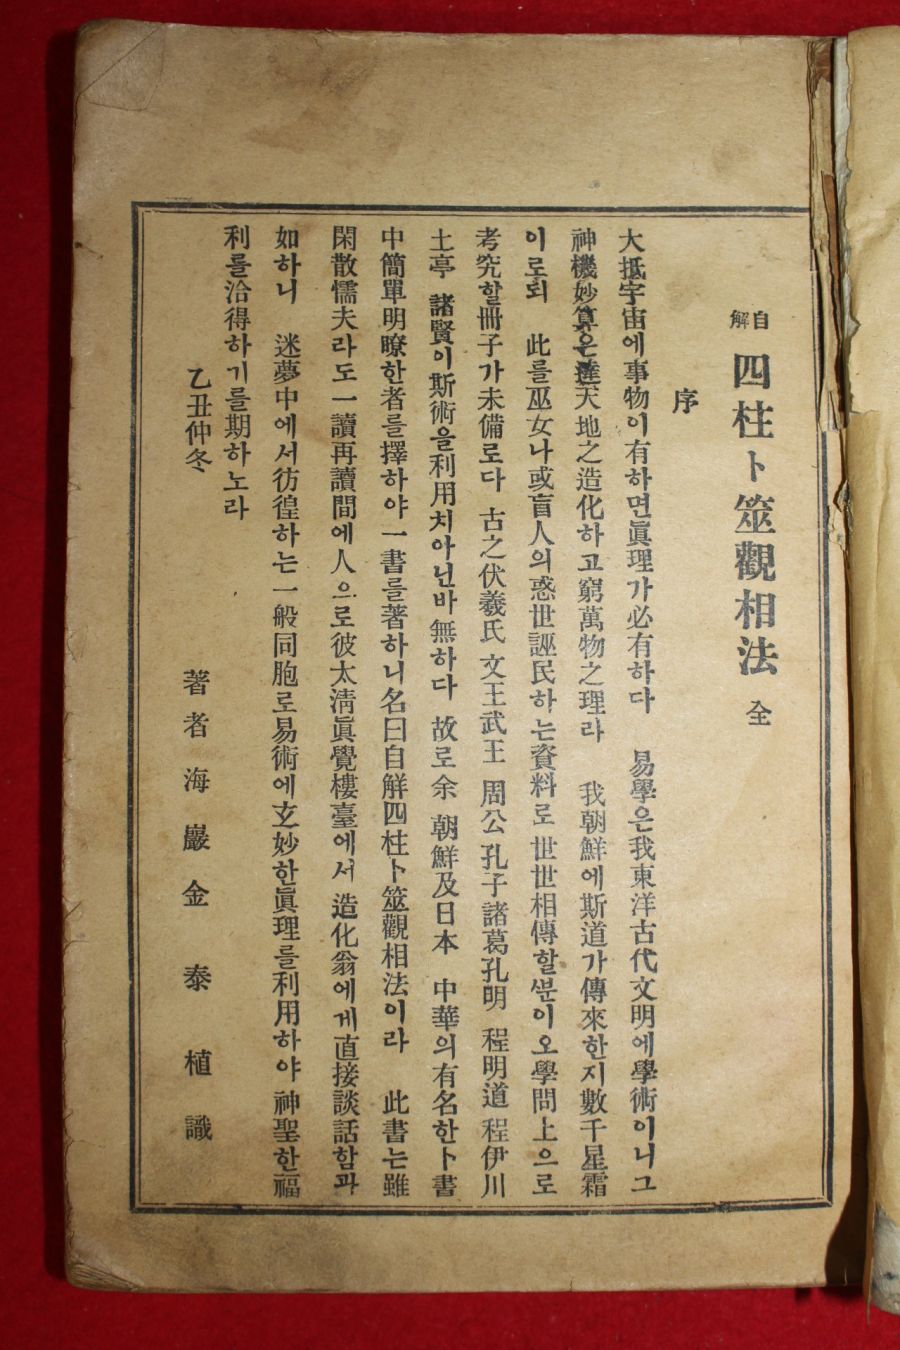 自解 四柱卜筮觀相法 全
序
大抵宇宙에事物이有하면眞理가必有하다 易學은我東洋古代文明에學術이니그
神機妙算은達天地之造化하고窮萬物之理라 我朝鮮에斯道가傳來한지數千星霜
이로되 此를巫女나或盲人의惑世誣民하는資料로 世世相傳할뿐이오學問上으로
考究할冊子가未備로다 古之伏羲氏 文王武王 周公孔子諸葛孔明 程明道 程伊川
土亭 諸賢이斯術을利用치아닌바無하다 故로余 朝鮮及日本 中華의有名한卜書
中簡單明瞭한者를擇하야一書를著하니名曰自解四柱卜筮觀相法이라 此書는雖
閑散懦夫라도一讀再讀間에人으로彼太淸眞覺樓臺에서 造化翁에게直接談話함과
如하니 迷夢中에서彷徨하는一般同胞로易術에玄妙한眞理를利用하야神聖한福
利를洽得하기를期하노라
乙丑仲冬
著者海巖金泰植識